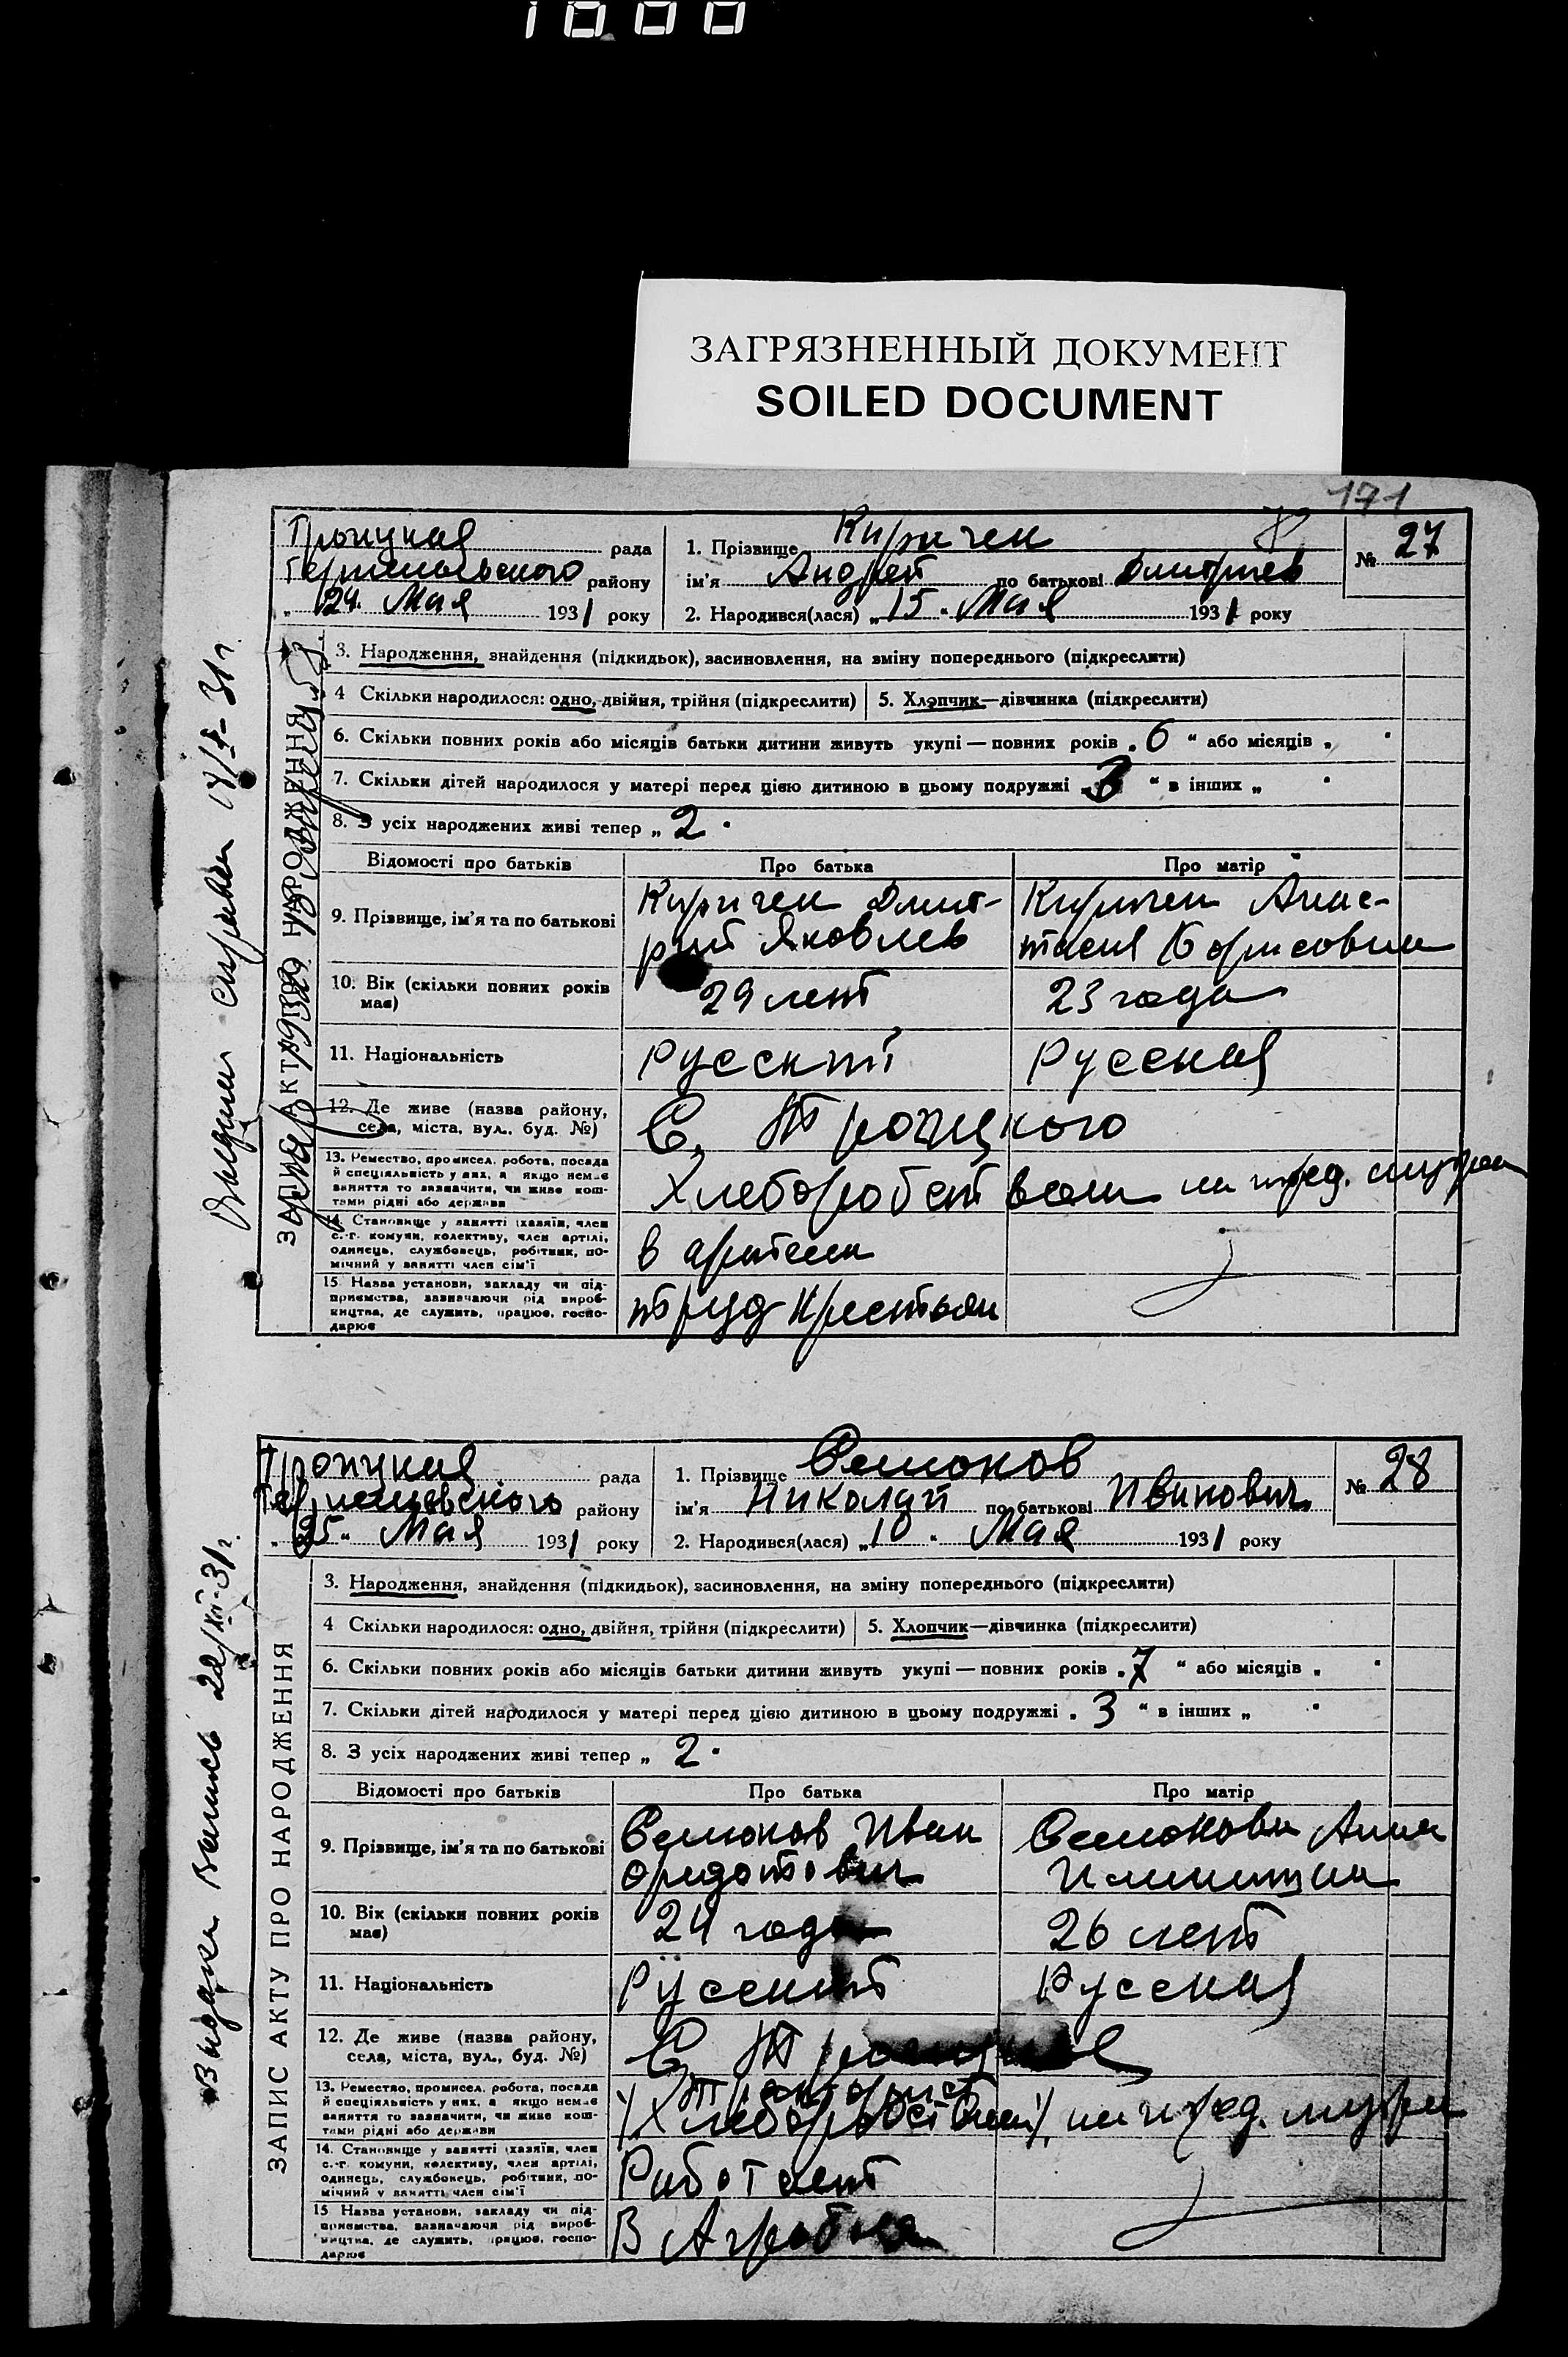 1000
ЗАГРЯЗНЕННЫЙ ДОКУМЕНТ
SOILED DOCUMENT
171
Троцкая рада
району
„24. Мая 1931 року
1. Прізвище Киричек
ім'я Андрей по батькові Дмитриев
2. Народився(лася) „15. Мая 1931 року
№ 27
ЗАПИС АКТУ ПРО НАРОДЖЕННЯ
3. Народження, знайдення (підкидьок), засиновлення, на зміну попереднього (підкреслити)
4 Скільки народилося: одно, двійня, трійня (підкреслити) 5. Хлопчик—дівчинка (підкреслити)
6. Скільки повних років або місяців батьки дитини живуть укупі — повних років „6 “ або місяців „
7. Скільки дітей народилося у матері перед цією дитиною в цьому подружжі „3 “ в інших „
8. З усіх народжених живі тепер „ 2.
Відомості про батьків Про батька Про матір
9. Прізвище, ім'я та по батькові
Киричек Дмит-
рий Яковлев
Киричек Анас-
тасия Борисовна
10. Вік (скільки повних років має) 29 лет 23 года
11. Національність Русский Русская
12. Де живе (назва району,
села, міста, вул., буд. №)
С. Троцкого
13. Ремество, промисел, робота, посада
й спеціяльність у них, а якщо немає
заняття то зазначити, чи живе кош-
тами рідні або держави
Хлеборобством на
14. Становище у занятті (хазяїн, член
с.-г. комуни, колективу, член артілі,
одинець, службовець, робітник, по-
мічний у занятті член сім'ї
в артели
15. Назва установи, закладу чи під-
приємства, зазначаючи рід вироб-
ництва, де служить, працює, госпо-
дарює
труд крестьян
Троцкая рада
району
„25. Мая 1931 року
1. Прізвище Семоков
ім'я Николай по батькові Иванович
2. Народився(лася) „10. Мая 1931 року
№ 28
Видана Выпись 22/XII-31г.
ЗАПИС АКТУ ПРО НАРОДЖЕННЯ
3. Народження, знайдення (підкидьок), засиновлення, на зміну попереднього (підкреслити)
4 Скільки народилося: одно, двійня, трійня (підкреслити) 5. Хлопчик—дівчинка (підкреслити)
6. Скільки повних років або місяців батьки дитини живуть укупі — повних років „7 “ або місяців „
7. Скільки дітей народилося у матері перед цією дитиною в цьому подружжі „3 “ в інших „
8. З усіх народжених живі тепер „ 2.
Відомості про батьків Про батька Про матір
9. Прізвище, ім'я та по батькові
Семоков Иван
Семокова Анна
10. Вік (скільки повних років має) 24 года 26 лет
11. Національність Русский Русская
12. Де живе (назва району,
села, міста, вул., буд. №)
С.
13. Ремество, промисел, робота, посада
й спеціяльність у них, а якщо немає
заняття то зазначити, чи живе кош-
тами рідні або держави
Тракторист
14. Становище у занятті (хазяїн, член
с.-г. комуни, колективу, член артілі,
одинець, службовець, робітник, по-
мічний у занятті член сім'ї
Работает
15 Назва установи, закладу чи під-
приємства, зазначаючи рід вироб-
ництва, де служить, працює, госпо-
дарює
В